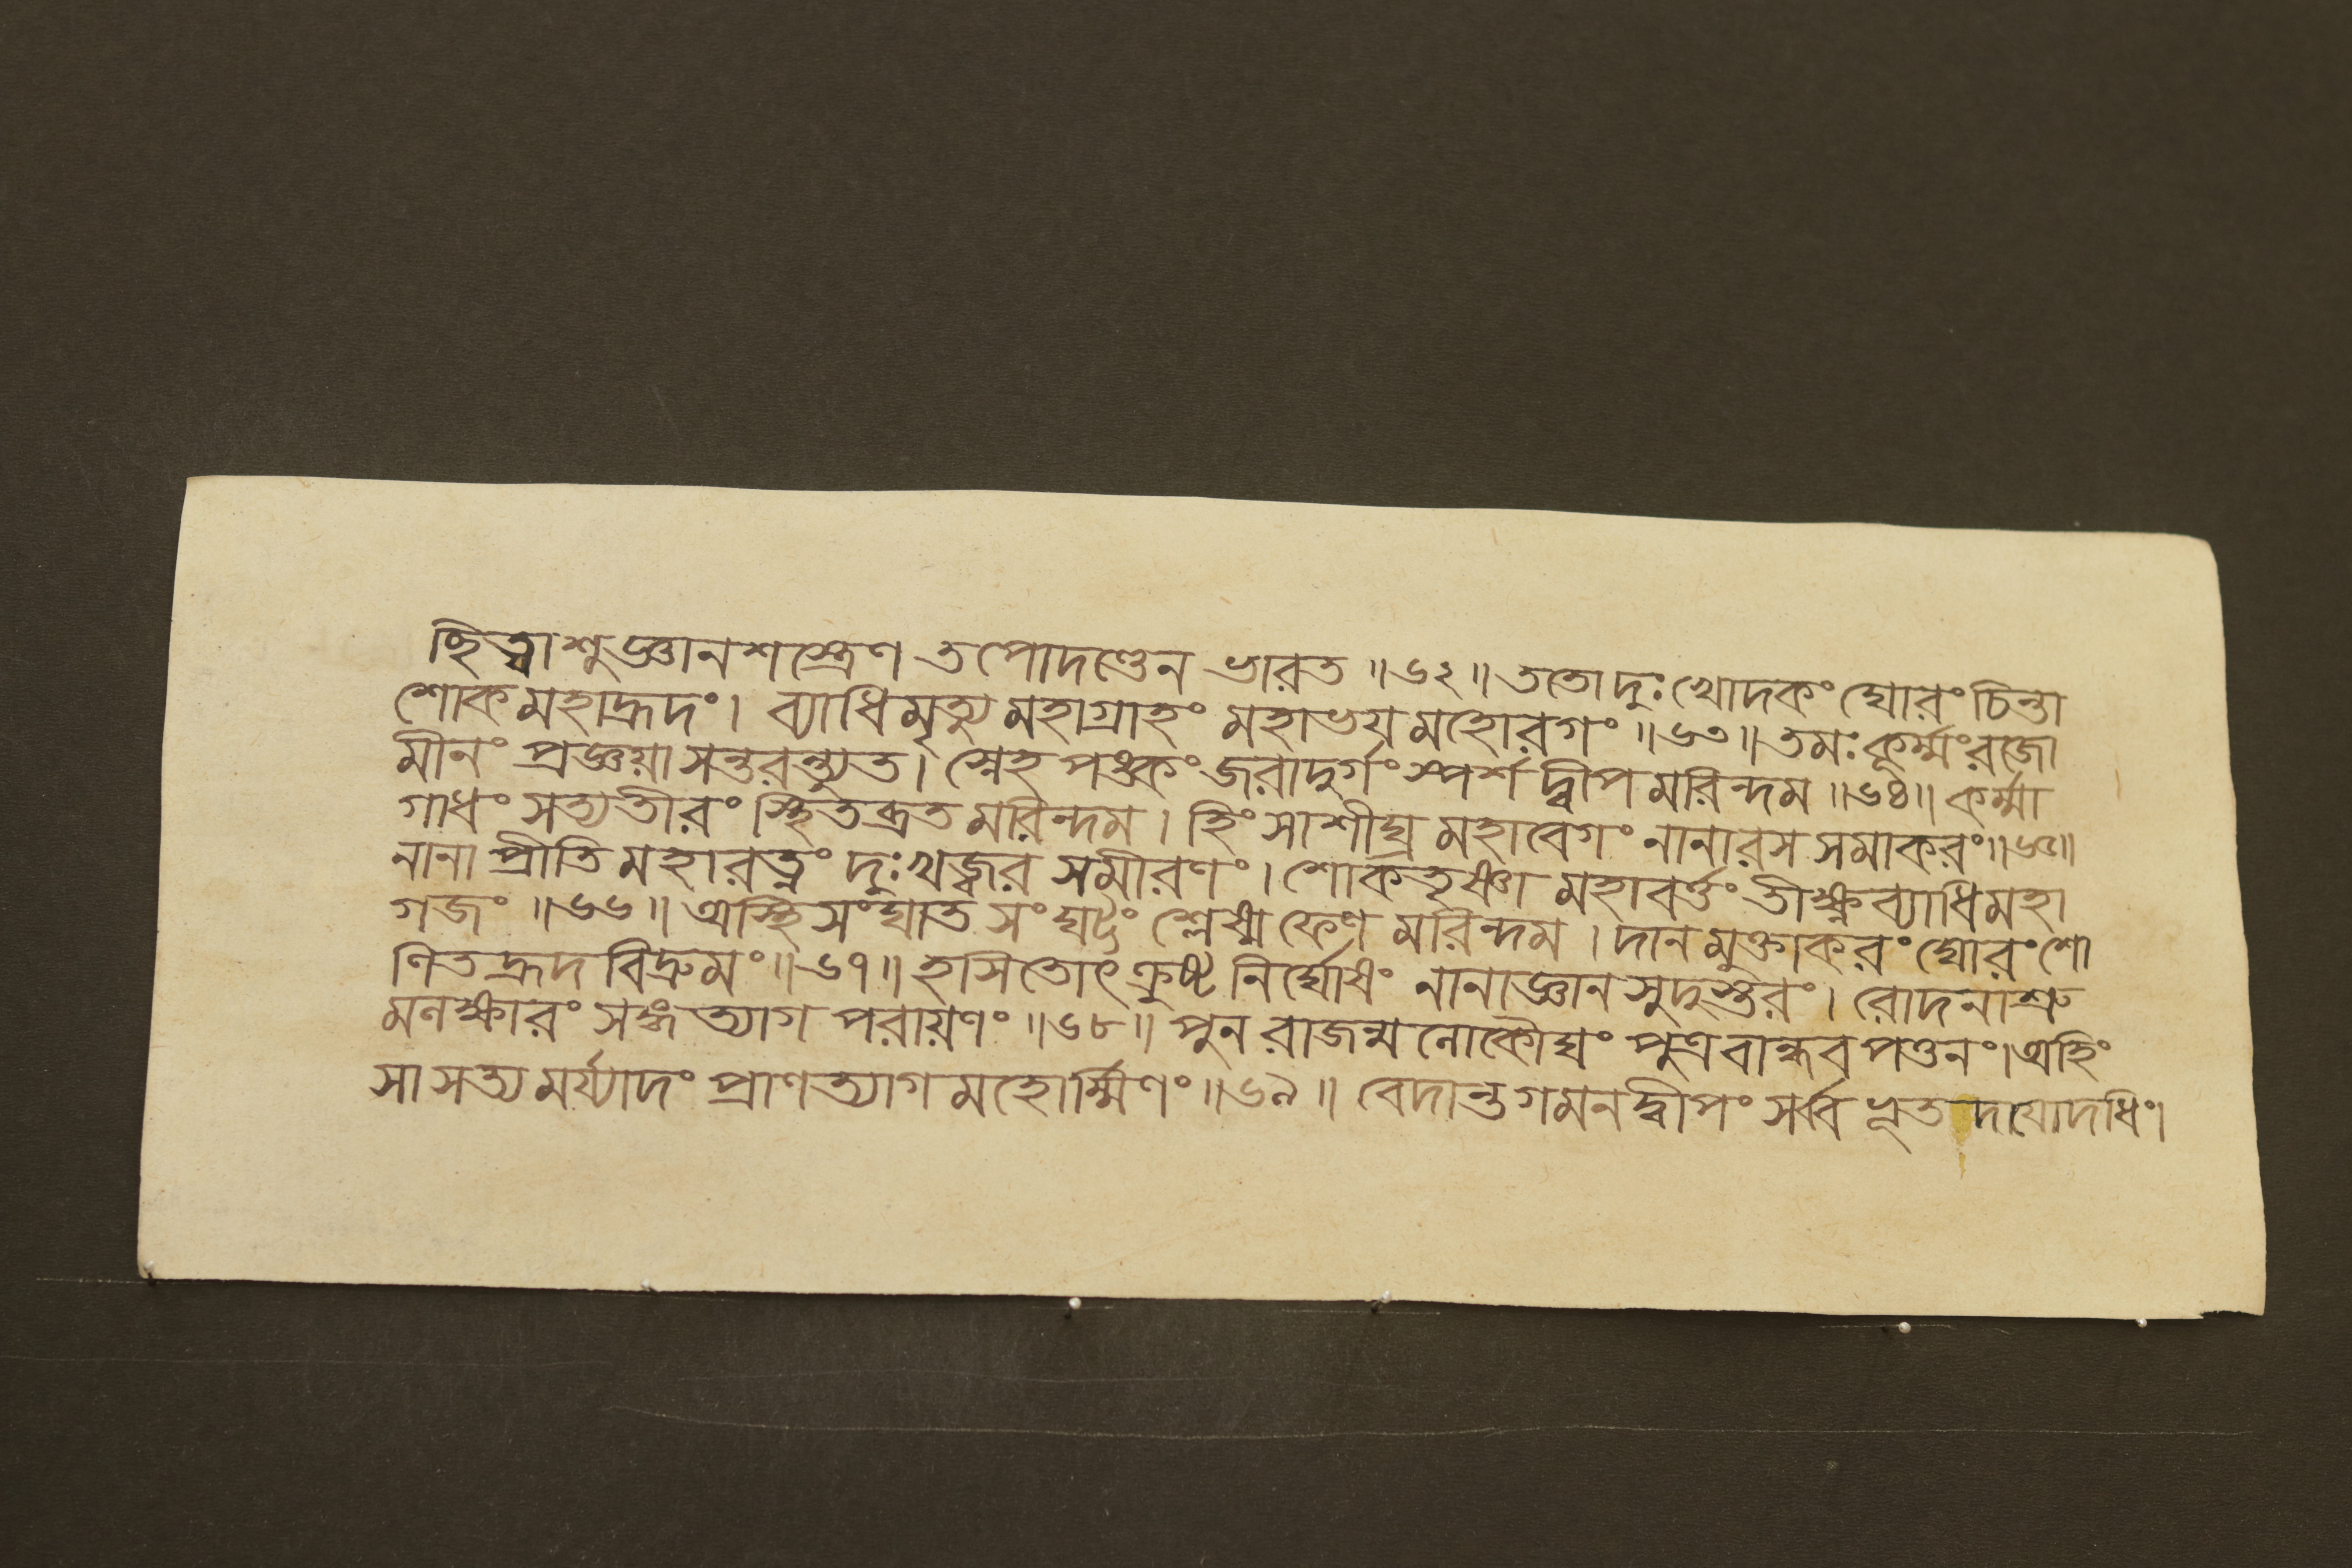 ছিত্বাশুজ্ঞানশস্ত্রেণ তপোদণ্ডেন ভারত ॥৬২॥ ততোদুঃখোদকং ঘোরং চিন্তা
শোকমহাহ্রদং। ব্যাধিমৃত্যুমহাগ্রাহং মহাভয়মহোরগং ॥৬৩॥ তমঃকূর্ম্মংরজো
মীনং প্রজ্ঞয়াসন্তরন্ত্যুত। স্নেহপঙ্কংজরাদুর্গংস্পর্শদ্বীপমরিন্দম ॥৬৪॥ কর্ম্মা
গাধং সত্যতীরং স্থিতব্রতমরিন্দম। হিংসাশীঘ্রমহাবেগং নানারসসমাকরং॥৬৫॥
নানাপ্রীতিমহারত্নং দুঃখজ্বরসমীরণং। শোকতৃষ্ণামহাবর্ত্তং তীক্ষ্ণব্যাধিমহা
গজং ॥৬৬॥ অস্থিসংঘাতসংঘট্টং শ্লেষ্মফেণমরিন্দম। দানমুক্তাকরং ঘোরংশো
ণিতহ্রদবিদ্রুমং॥৬৭॥ হসিতোৎক্রুষ্টনির্ঘোষং নানাজ্ঞানসুদুস্তরং। রোদনাশ্রু
মনক্ষারং সঙ্গত্যাগপরায়ণং ॥৬৮॥ পুনরাজন্মনোকৌঘং পুত্রবান্ধবপত্তনং।অহিং
সাসত্যমর্য্যাদং প্রাণত্যাগমহোর্ম্মিণং॥৬৯॥ বেদান্তগমনদ্বীপং সর্ব্বভূতদয়োদধিং।